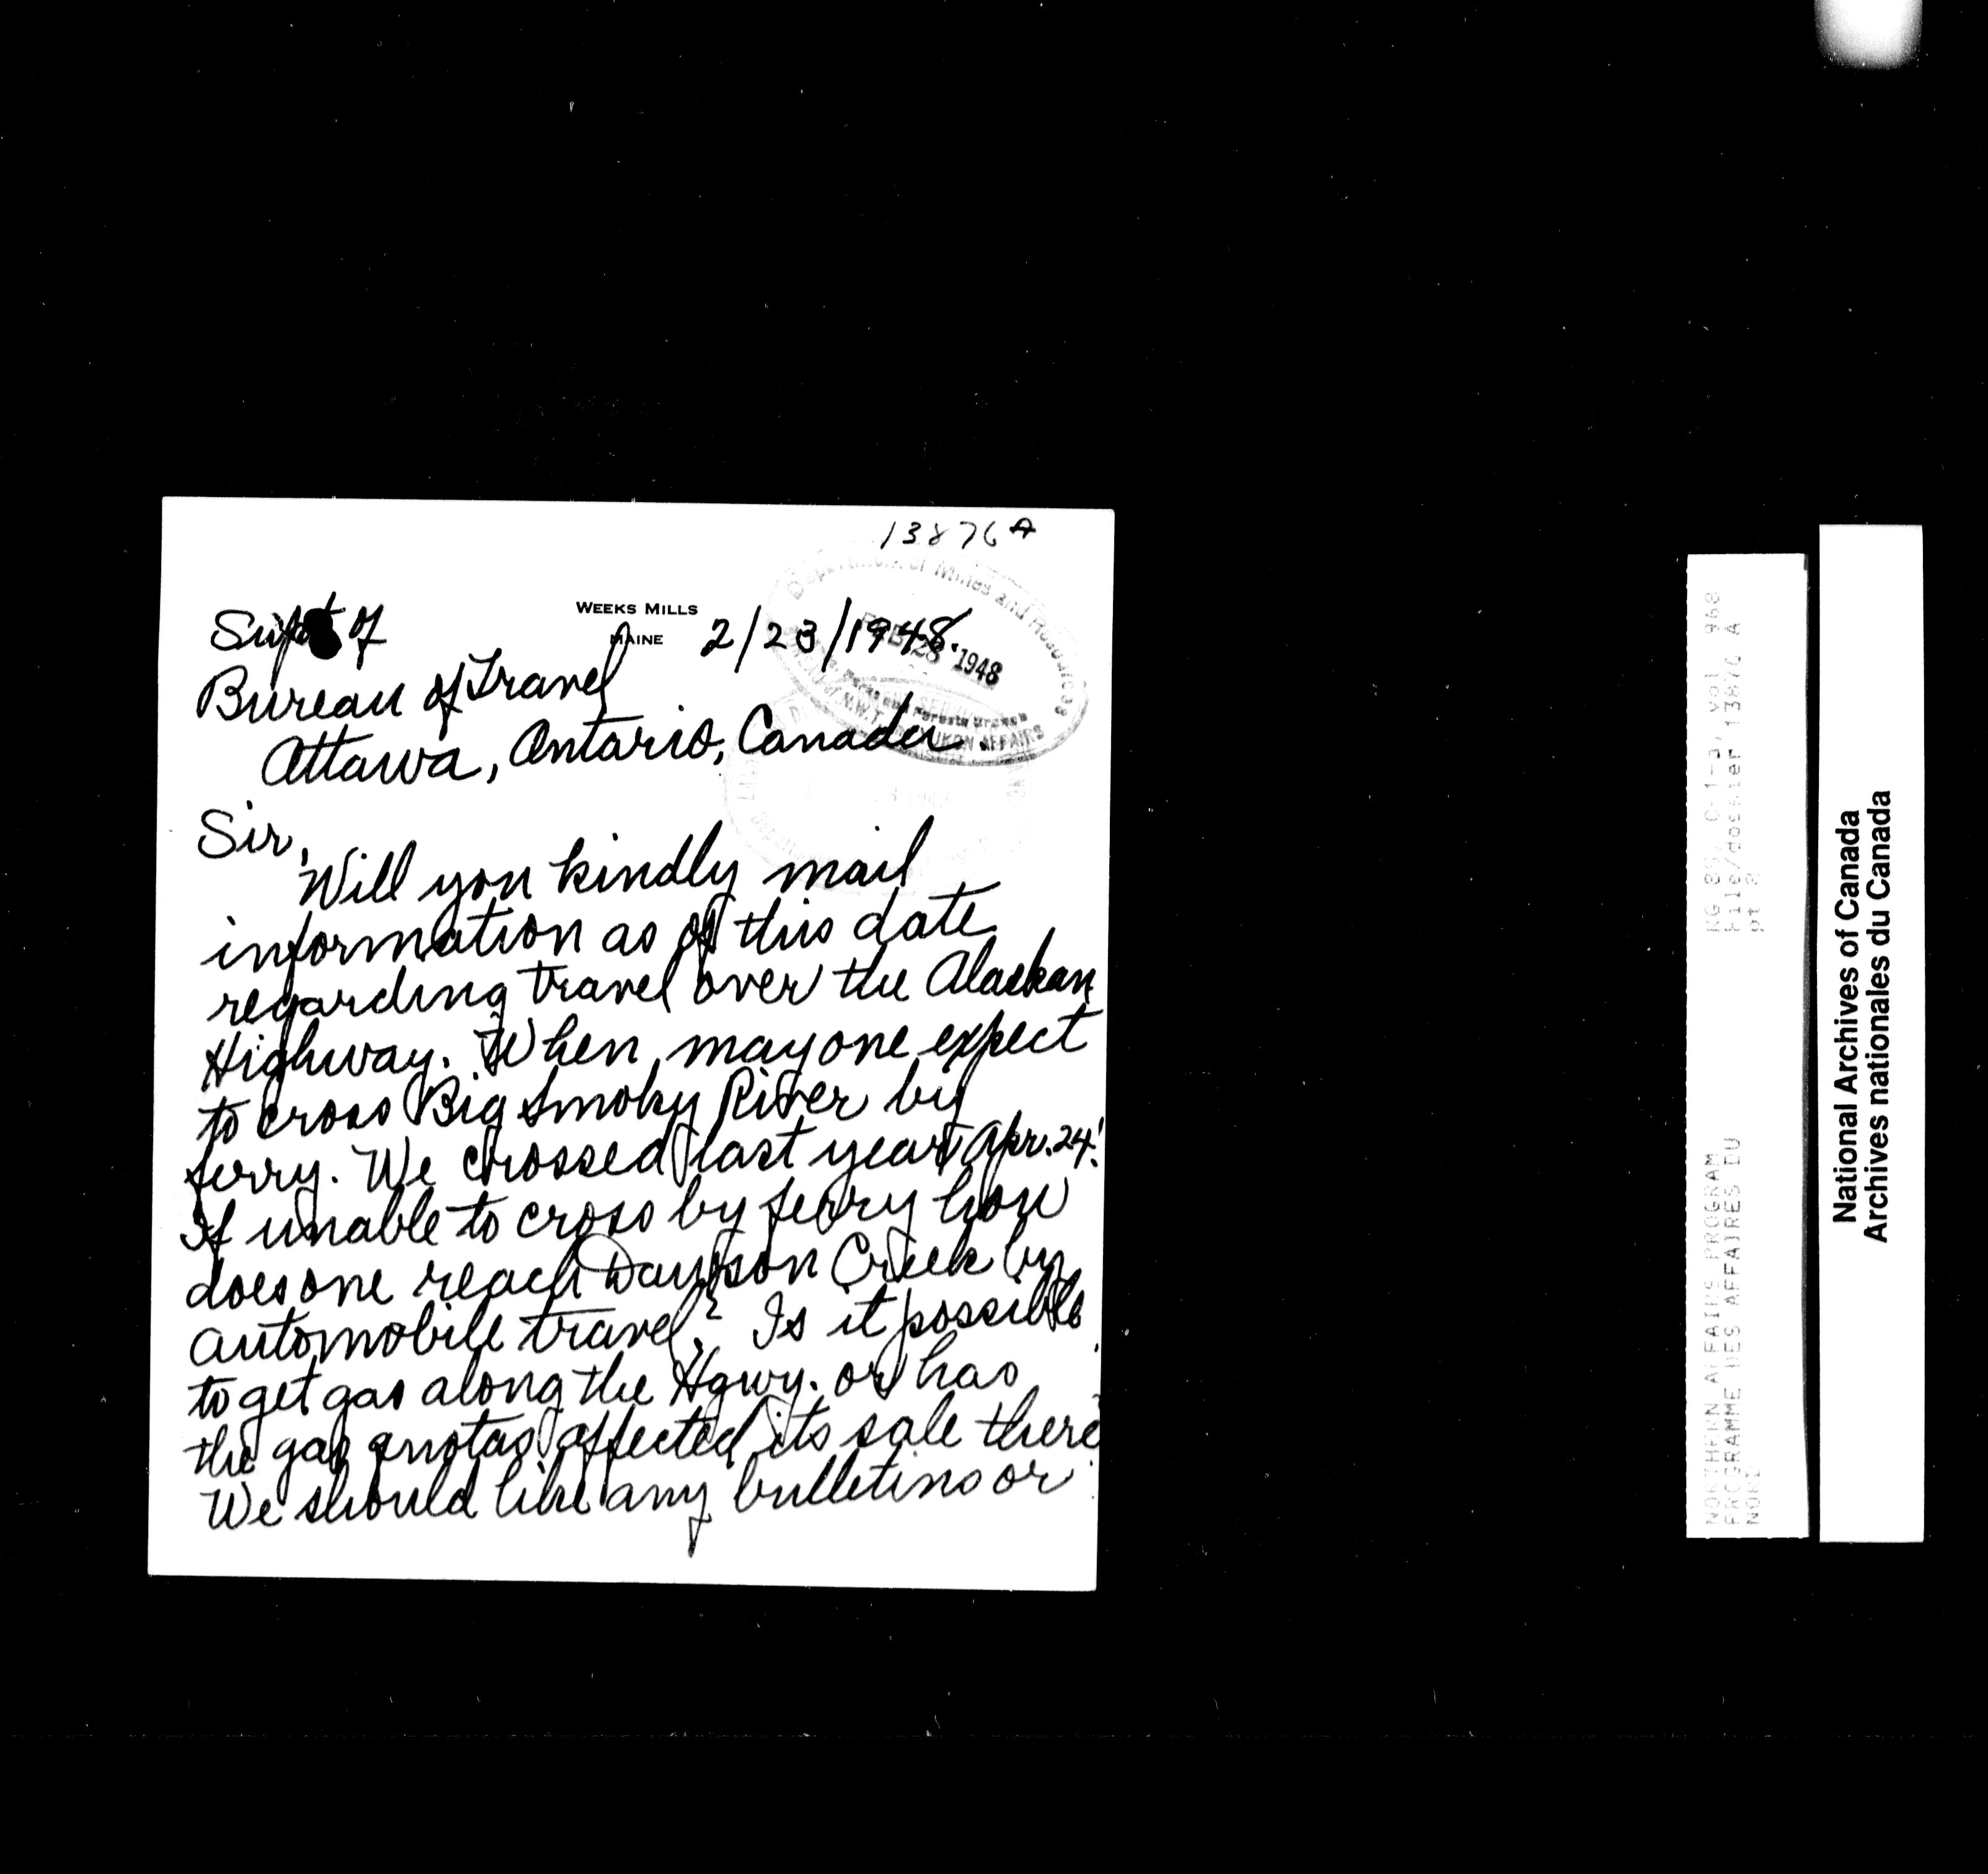 13876A
WEEKS MILLS
MAINE
2/23/1948.
Supt of
Bureau of Travel
Ottawa, Ontario, Canada.
Department of Mines and Resources
FEB 28 1948
Lands and Forests Branch
N.W.T. YUKON AFFAIRS
Sir,
Will you kindly mail
information as of this date
regarding travel over the Alaskan
Highway. When may one expect
to cross Big Smoky River by
ferry. We crossed last year Apr. 24!
If unable to cross by ferry how
does one reach Dawson Creek by
automobile travel? Is it possible
to get gas along the Hgwy. or has
the gas quotas affected its sale there?
We should like any bulletins or
RG 85, C-1-a, vol 968
File/dossier 13876 A
pt 2
NORTHERN AFFAIRS PROGRAM
PROGRAMME DES AFFAIRES DU
NORD
National Archives of Canada
Archives nationales du Canada